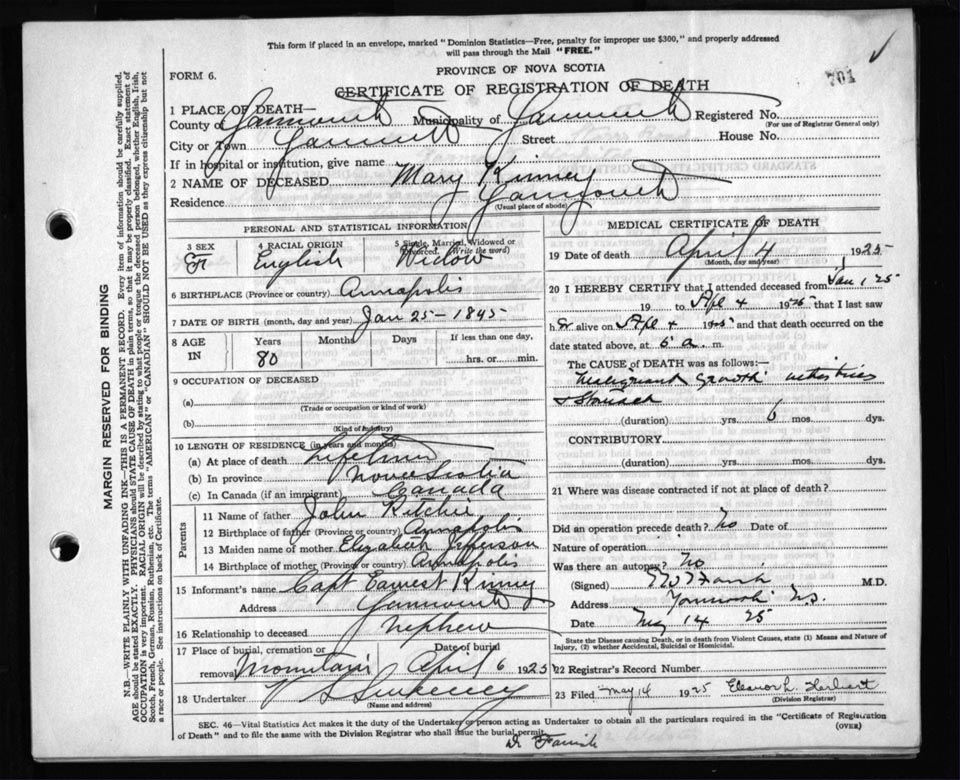 This form if placed in an envelope, marked "Dominion Statistics—Free, penalty for improper use $300," and properly addressed
will pass through the Mail "FREE."
701
PROVINCE OF NOVA SCOTIA
FORM 6.
CERTIFICATE OF REGISTRATION OF DEATH
1 PLACE OF DEATH—
County of Yarmouth Municipality of Yarmouth Registered No.
(For use of Registrar General only)
City or Town Yarmouth Street House No.
If in hospital or institution, give name
2 NAME OF DECEASED Mary Kinney
Residence Yarmouth
(Usual place of abode)
PERSONAL AND STATISTICAL INFORMATION
3 SEX F
4 RACIAL ORIGIN English
5 Single, Married, Widowed or Divorced (Write the word) Widow
6 BIRTHPLACE (Province or country) Annapolis
7 DATE OF BIRTH (month, day and year) Jan 25-1845
8 AGE IN Years 80 Months Days If less than one day, hrs. or min.
9 OCCUPATION OF DECEASED
(a)
(Trade or occupation or kind of work)
(b)
(Kind of Industry)
10 LENGTH OF RESIDENCE (in years and months)
(a) At place of death Lifetime
(b) In province Nova Scotia
(c) In Canada (if an immigrant) Canada
Parents
11 Name of father John Ritchie
12 Birthplace of father (Province or country) Annapolis
13 Maiden name of mother Elizabeth Jefferson
14 Birthplace of mother (Province or country) Annapolis
15 Informant's name Capt Earnest Kinney
Address Yarmouth
16 Relationship to deceased nephew
17 Place of burial, cremation or removal Mountain Date of burial April 6 1925
18 Undertaker V S Sweeney
(Name and address)
MEDICAL CERTIFICATE OF DEATH
19 Date of death April 4 1925
(Month, day and year)
20 I HEREBY CERTIFY that I attended deceased from Jan 1, 25
19 to Apl 4 1925 that I last saw
her alive on Apl 4 1925 and that death occurred on the
date stated above, at 5 a. m.
The CAUSE OF DEATH was as follows:—
Malignant growth
& Stomach
(duration) yrs. 6 mos. dys.
CONTRIBUTORY
(duration) yrs. mos. dys.
21 Where was disease contracted if not at place of death?
Did an operation precede death? No Date of
Nature of operation
Was there an autopsy? No
(Signed) Farish M.D.
Address Yarmouth N.S.
Date May 14 25
State the Disease causing Death, or in death from Violent Causes, state (1) Means and Nature of
Injury, (2) whether Accidental, Suicidal or Homicidal.
22 Registrar's Record Number
23 Filed May 14 1925 Eleanor L. Herbert
(Division Registrar)
SEC. 46—Vital Statistics Act makes it the duty of the Undertaker or person acting as Undertaker to obtain all the particulars required in the "Certificate of Registration
of Death" and to file the same with the Division Registrar who shall issue the burial permit.
(OVER)
Dr Farish
MARGIN RESERVED FOR BINDING
N.B.—WRITE PLAINLY WITH UNFADING INK—THIS IS A PERMANENT RECORD. Every item of information should be carefully supplied.
AGE should be stated EXACTLY. PHYSICIANS should STATE CAUSE OF DEATH in plain terms, so that it may be properly classified. Exact statement of
OCCUPATION is very important. RACIAL ORIGIN will be described by stating to what people or tongue the deceased person belonged, whether English, Irish,
Scotch, French, German, Russian, Ruthenian, etc. The terms "AMERICAN" or "CANADIAN" SHOULD NOT BE USED as they express citizenship but not
a race or people. See instructions on back of Certificate.